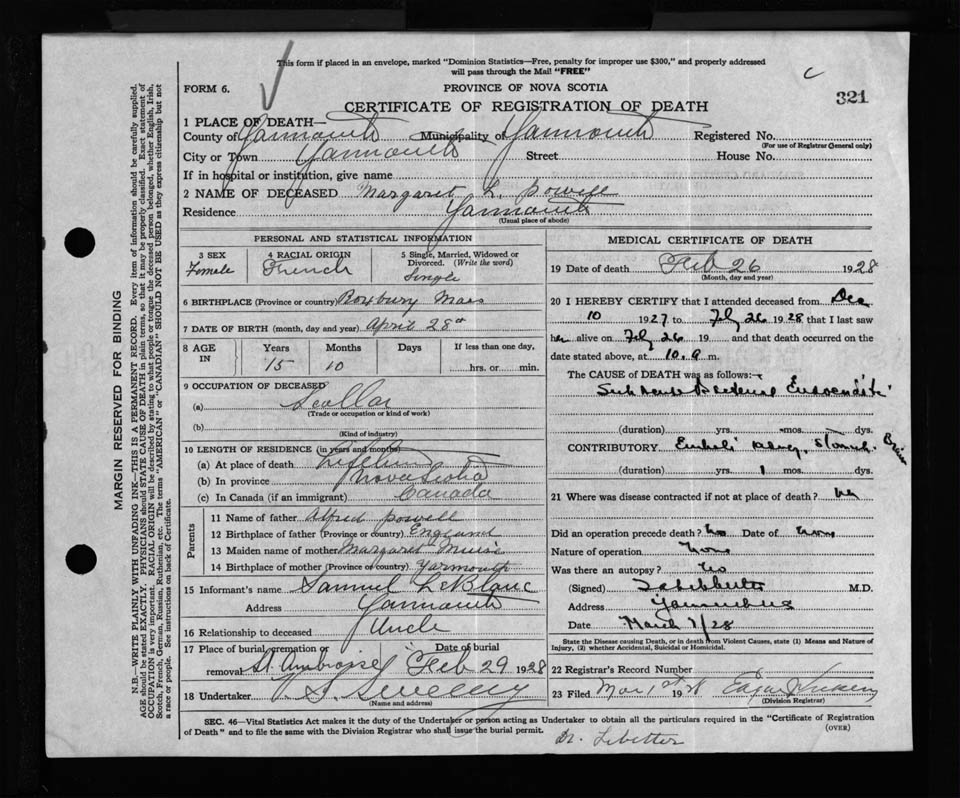 This form if placed in an envelope, marked "Dominion Statistics—Free, penalty for improper use $300," and properly addressed
will pass through the Mail "FREE"
FORM 6.
PROVINCE OF NOVA SCOTIA
c
321
CERTIFICATE OF REGISTRATION OF DEATH
1 PLACE OF DEATH—
County of Yarmouth Municipality of Yarmouth Registered No.
(For use of Registrar General only)
City or Town Yarmouth Street House No.
If in hospital or institution, give name
2 NAME OF DECEASED Margaret L. Powell
Residence Yarmouth
(Usual place of abode)
PERSONAL AND STATISTICAL INFORMATION
3 SEX Female
4 RACIAL ORIGIN French
5 Single, Married, Widowed or Divorced. (Write the word) Single
6 BIRTHPLACE (Province or country) Roxbury Mass
7 DATE OF BIRTH (month, day and year) April 28th
8 AGE IN Years Months Days If less than one day,
15 10 hrs. or min.
9 OCCUPATION OF DECEASED
(a) Scollar
(Trade or occupation or kind of work)
(b)
(Kind of industry)
10 LENGTH OF RESIDENCE (in years and months)
(a) At place of death Lifetime
(b) In province Nova Scotia
(c) In Canada (if an immigrant) Canada
Parents
11 Name of father Alfred Powell
12 Birthplace of father (Province or country) England
13 Maiden name of mother Margaret Muise
14 Birthplace of mother (Province or country) Yarmouth
15 Informant's name Samuel LeBlanc
Address Yarmouth
16 Relationship to deceased Uncle
17 Place of burial, cremation or removal St. Ambroise Date of burial Feb 29 1928
18 Undertaker V. S. Sweeny
(Name and address)
MEDICAL CERTIFICATE OF DEATH
19 Date of death Feb 26 1928
(Month, day and year)
20 I HEREBY CERTIFY that I attended deceased from Dec
10 1927 to Feby 26 1928 that I last saw
her alive on Feby 26 19 and that death occurred on the
date stated above, at 10. a m.
The CAUSE of DEATH was as follows:—
Sub Acute Bacterial Endocarditis
(duration) yrs. mos. dys.
CONTRIBUTORY Emboli Stomach Brain
(duration) yrs. 1 mos. dys.
21 Where was disease contracted if not at place of death?
Did an operation precede death? no Date of
Nature of operation none
Was there an autopsy? no
(Signed) M.D.
Address Yarmouth NS
Date March 1/28
State the Disease causing Death, or in death from Violent Causes, state (1) Means and Nature of
Injury, (2) whether Accidental, Suicidal or Homicidal.
22 Registrar's Record Number
23 Filed Mar 1st 1928 Edgar
(Division Registrar)
SEC. 46—Vital Statistics Act makes it the duty of the Undertaker or person acting as Undertaker to obtain all the particulars required in the "Certificate of Registration
of Death" and to file the same with the Division Registrar who shall issue the burial permit.
(OVER)
Dr. Lebetter
MARGIN RESERVED FOR BINDING
N.B.—WRITE PLAINLY WITH UNFADING INK—THIS IS A PERMANENT RECORD. Every item of information should be carefully supplied.
AGE should be stated EXACTLY. PHYSICIANS should STATE CAUSE OF DEATH in plain terms, so that it may be properly classified. Exact statement of
OCCUPATION is very important. RACIAL ORIGIN will be described by stating to what people or tongue the deceased person belonged, whether English, Irish,
Scotch, French, German, Russian, Ruthenian, etc. The terms "AMERICAN" or "CANADIAN" SHOULD NOT BE USED as they express citizenship but not
a race or people. See instructions on back of Certificate.